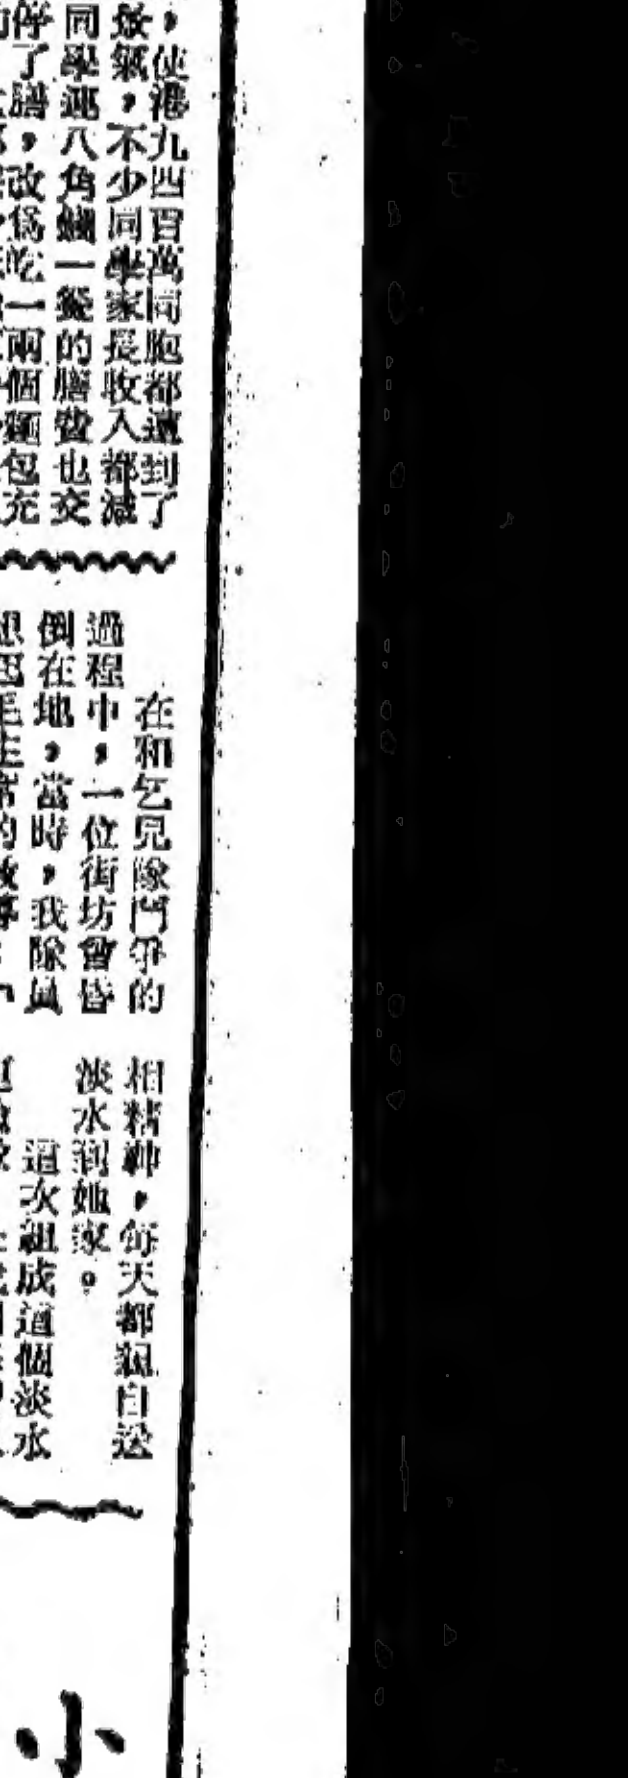 ，使港九四百萬同胞都遭到了
氣，不少同學家長收入都減
同學連八角錢一餐的膳費也交
停了膳，改爲吃一兩個麵包充
在和乞兒隊鬥爭的
過程中，一位街坊曾昏
倒在地，當時，我隊員
相精神，每天都親自送
淡水到她家。
這次組成這個淡水
小